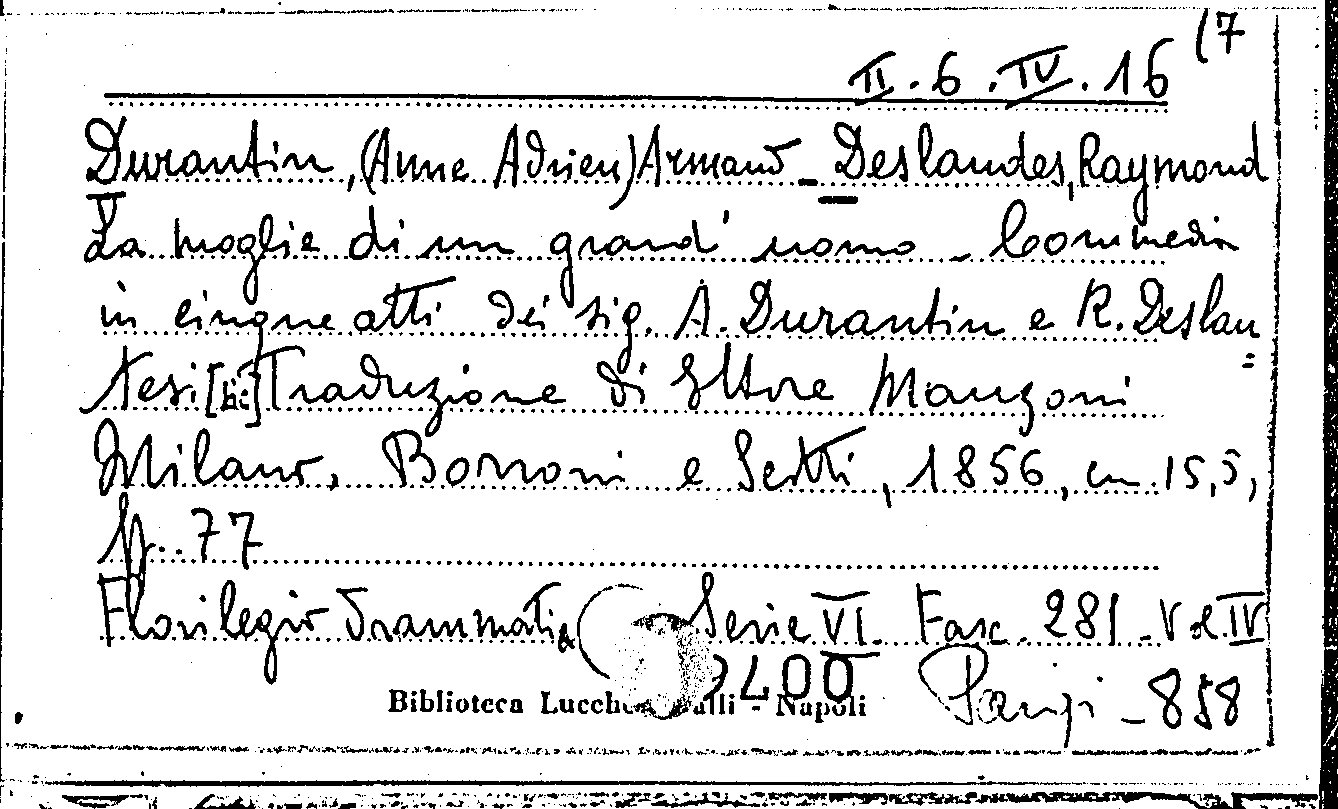 (7
II.6.IV.16
Durantin, (Anne Adrien) Armand - Deslandes, Raymond
La moglie di un grand'uomo - Commedia
in cinque atti dei sig. A. Durantin e R. Deslan=
tesi [sic] Traduzione di Ettore Manzoni
Milano, Borroni e Scotti, 1856, cm. 15,5,
pp. 77
Florilegio Drammatico Serie VI. Fasc. 281 - Vol. IV
Biblioteca Lucchesi Palli - Napoli
- 858